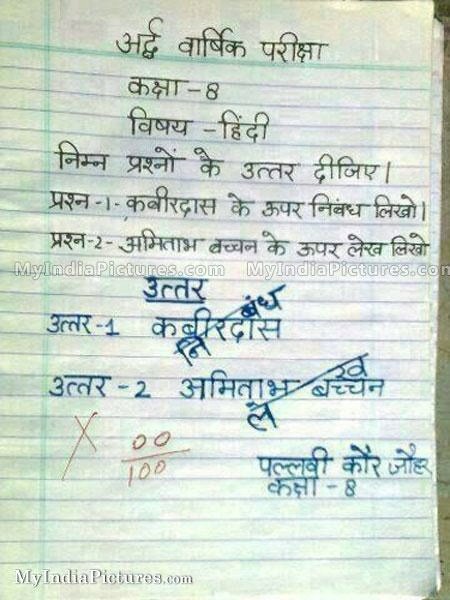 अर्द्ध वार्षिक परीक्षा
कक्षा - 8
विषय - हिंदी
निम्न प्रश्नों के उत्तर दीजिए।
प्रश्न -1- कबीरदास के ऊपर निबंध लिखो।
प्रश्न-2- अमिताभ बच्चन के ऊपर लेख लिखो
MyIndiaPictures.com MyIndiaPictures.com
उत्तर
उत्तर -1 कबीरदास
निबंध
उत्तर -2 अमिताभ बच्चन
लेख
X 00
100
पल्लवी कौर जौहर
कक्षा - 8
MyIndiaPictures.com